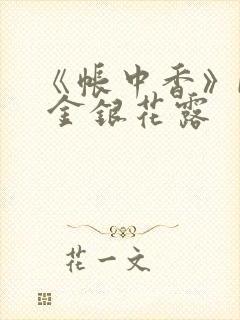 《帐中香》
金银花露
花一文